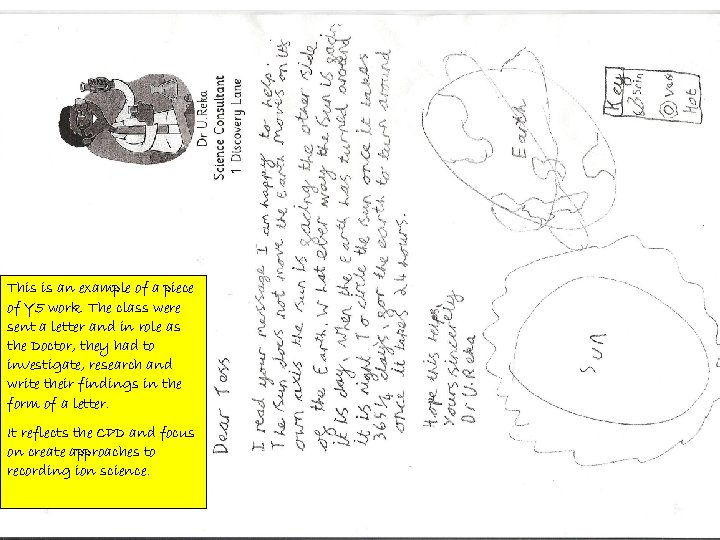 This is an example of a piece
of Y5 work. The class were
sent a letter and in role as
the Doctor, they had to
investigate, research and
write their findings in the
form of a letter.
It reflects the CPD and focus
on create approaches to
recording ion science.
Dr U.Reka
Science Consultant
1 Discovery Lane
Dear Tess
I read your message I am happy to help.
The sun does not move the Earth moves on its
own axis the sun is facing the other side
of the Earth. What ever way the sun is faci
it is day, when the Earth has turned around
it is night. To circle the sun once it takes
365 1/4 days, for the earth to turn around
once it takes 24 hours.
Hope this helps
yours sincerely
Dr U.Reka
Earth
Sun
Key
Spin
Hot